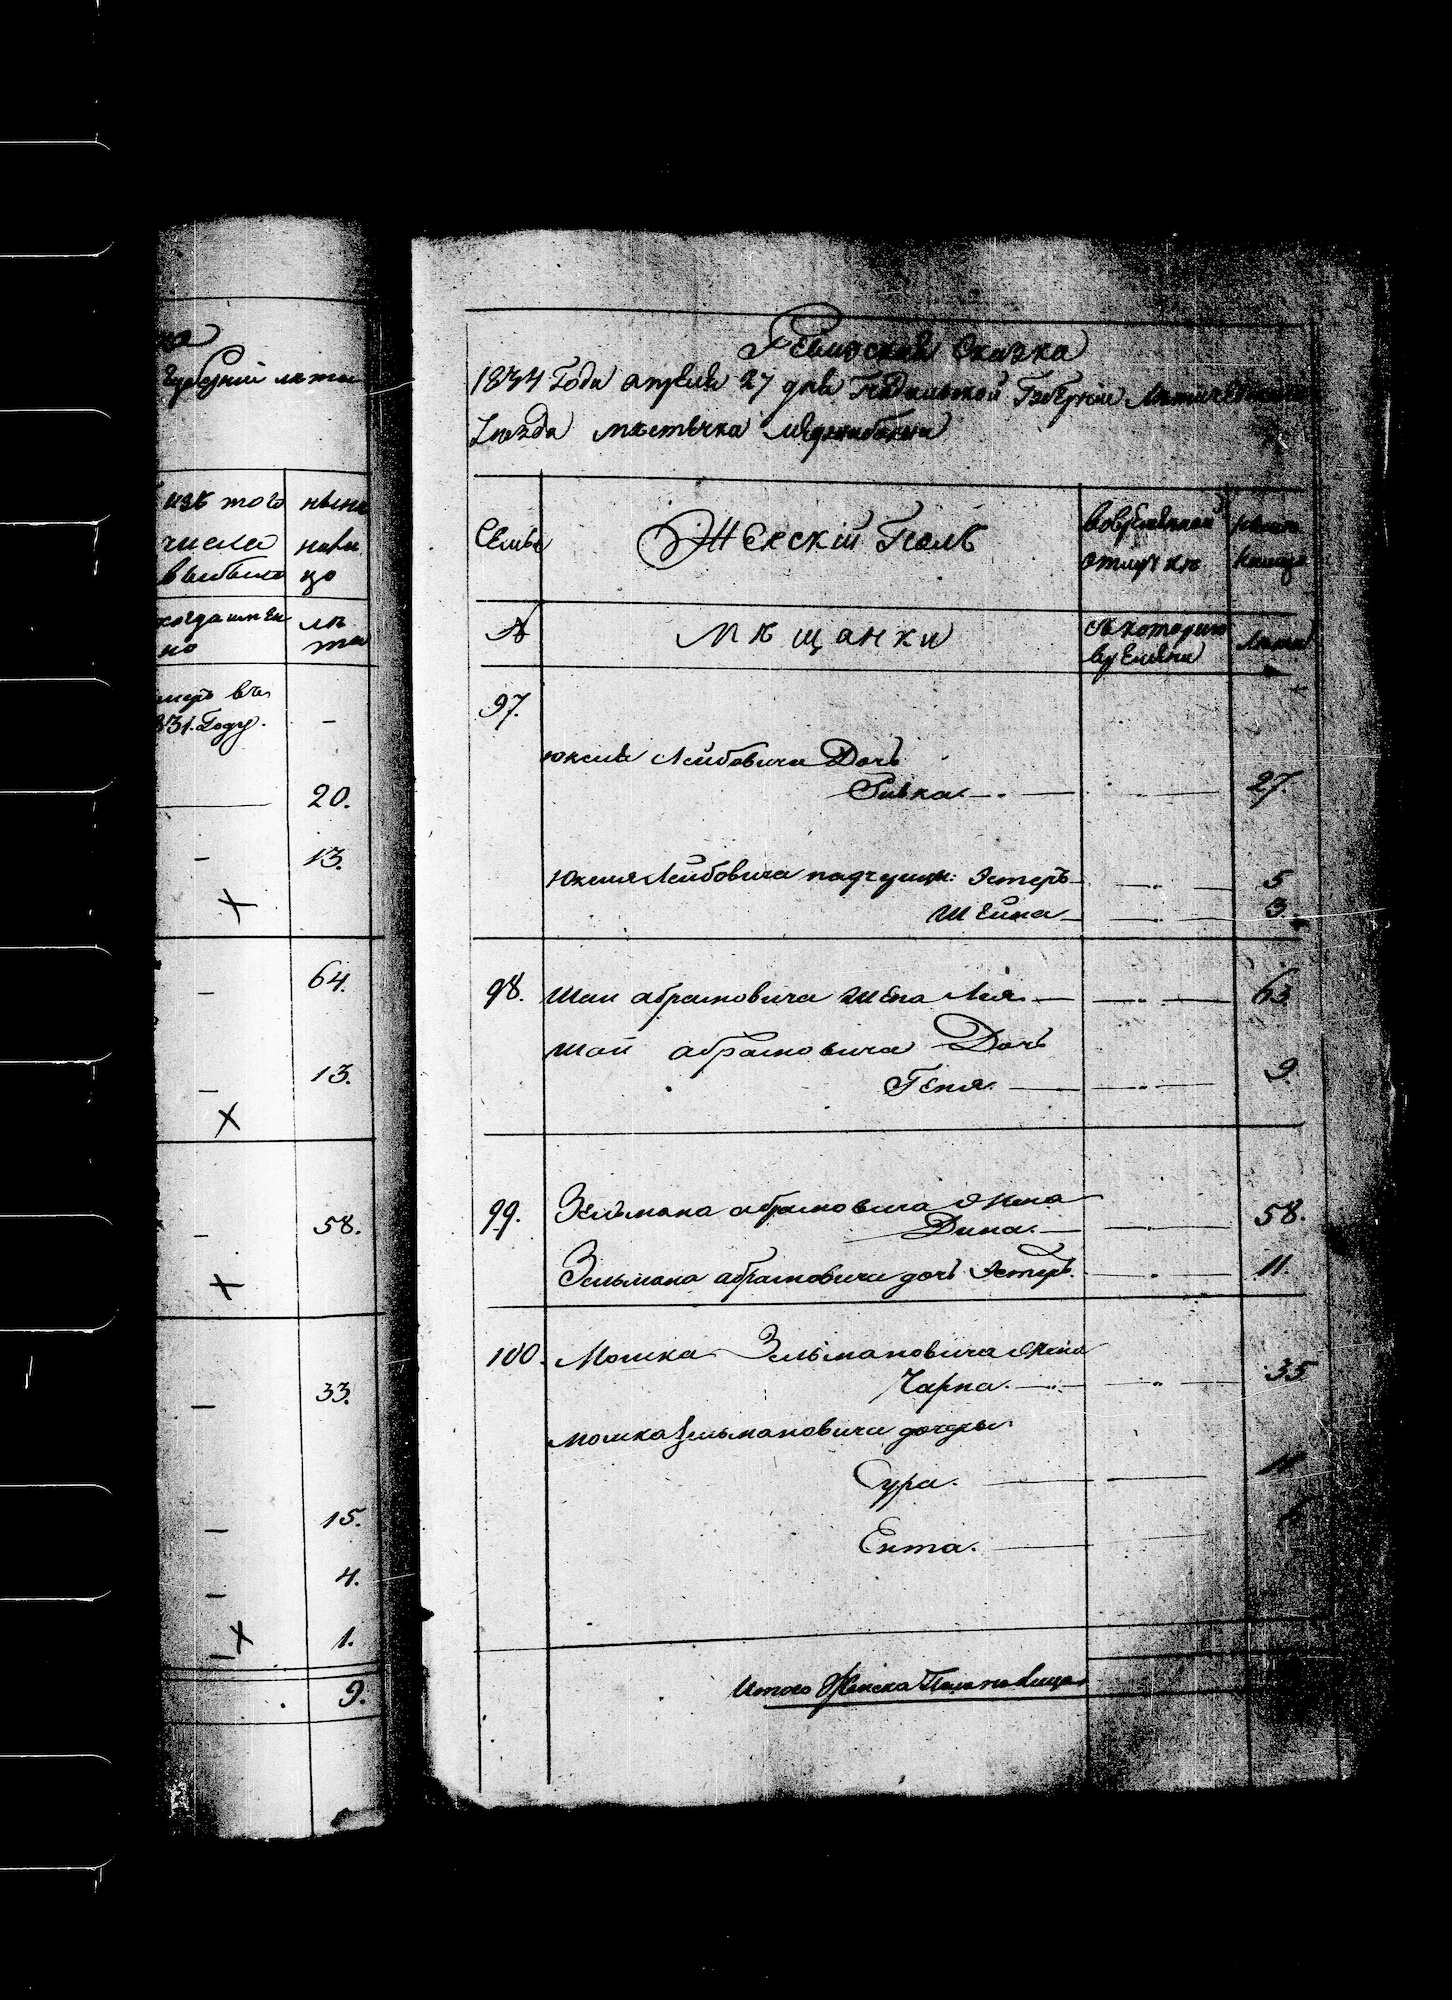 ка
Губерніи лети
изъ того
числа
выбыло
ныне
нали
цо
когда имен
но
ле
та
умеръ въ
1831. Году.
–
20.
–
13.
–
64.
–
13.
–
58.
–
33.
–
15.
–
4.
–
1.
9.
Ревизская Сказка
1834 Года апреля 27 дня Подольской Губерніи Летичевскаго
Уезда местечка Меджибожа
Семьи
Женскій Полъ
Вовременной
отлучке
ныне
налицо
№
Мѣщанки
съ котораго
времени
Лета
97.
Юкеля Лейбовича Дочь
Ривка. 27.
Юкеля Лейбовича падчерицы: Эстеръ 5
Шейна 3
98. Шаи Абрамовича Жена Лея 63
Шаи Абрамовича Дочь
Геня. 9.
99. Зельмана Абрамовича Жена
Дина. 58.
Зельмана Абрамовича дочь Эстеръ. 11.
100. Мошка Зельмановича Жена
Чарна. 35
Мошка Зельмановича дочеры.
Сура. 11
Ента.
Итого Женска Пола на лицо